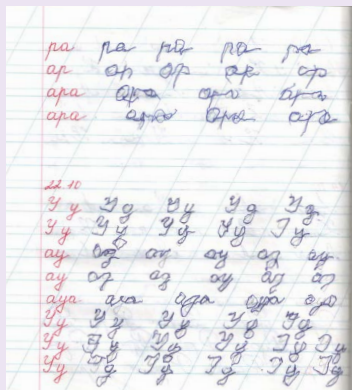 ра ра ра ра ра
ар ар ар ар ар
ара ара ара ара
ара ара ара ара
22 10
Уу Уу Уу Уу Уу
Уу Уу Уу Уу Уу
ау ау ау ау ау ау
ау ау ау ау ау ау
ауа ауа ауа ауа ауа
Уу Уу Уу Уу Уу
Уу Уу Уу Уу Уу Уу
Уу Уу Уу Уу Уу Уу